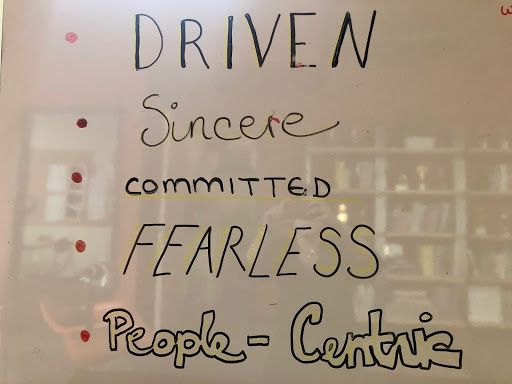 DRIVEN
Sincere
COMMITTED
FEARLESS
People - Centric